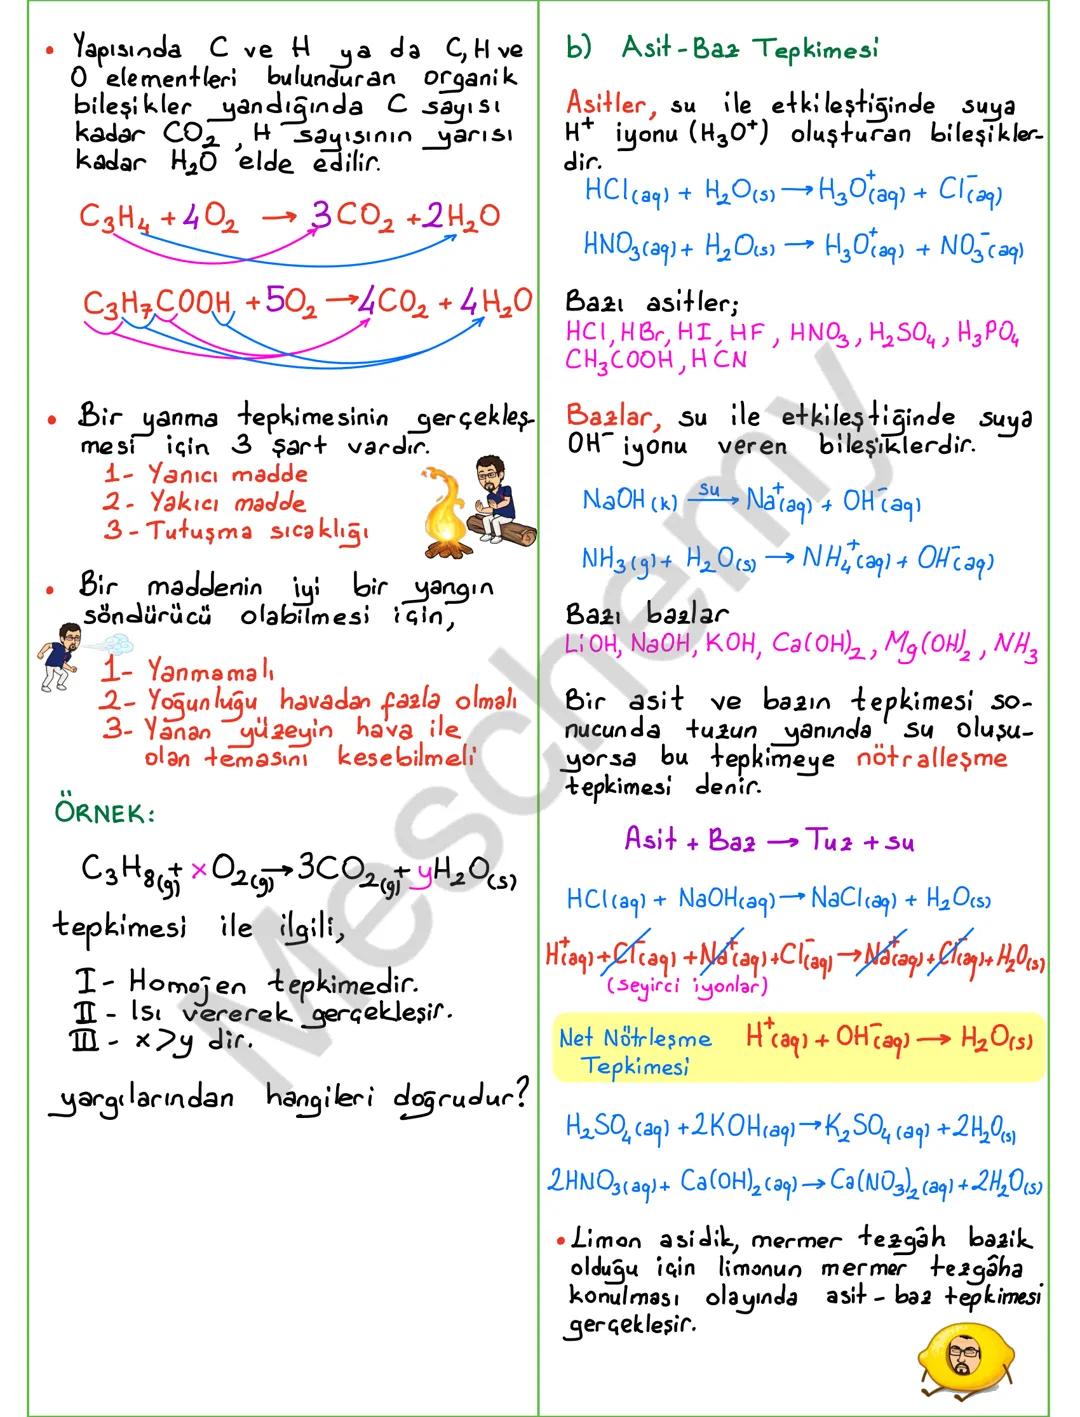 • Yapısında C ve H ya da C, H ve
O elementleri bulunduran organik
bileşikler yandığında C sayısı
kadar CO₂, H sayısının yarısı
kadar H₂O elde edilir.
C₃H₄ + 4O₂ → 3CO₂ + 2H₂O
C₃H₇COOH + 5O₂ → 4CO₂ + 4H₂O
• Bir yanma tepkimesinin gerçekleş-
mesi için 3 şart vardır.
1- Yanıcı madde
2- Yakıcı madde
3- Tutuşma sıcaklığı
• Bir maddenin iyi bir yangın
söndürücü olabilmesi için,
1- Yanmamalı
2- Yoğunluğu havadan fazla olmalı
3- Yanan yüzeyin hava ile
olan temasını kesebilmeli
ÖRNEK:
C₃H₈(g) + xO₂(g) → 3CO₂(g) + yH₂O(s)
tepkimesi ile ilgili,
I - Homojen tepkimedir.
II - Isı vererek gerçekleşir.
III - x>y dir.
yargılarından hangileri doğrudur?
b) Asit-Baz Tepkimesi
Asitler, su ile etkileştiğinde suya
H⁺ iyonu (H₃O⁺) oluşturan bileşikler-
dir.
HCl(aq) + H₂O(s) → H₃O⁺(aq) + Cl⁻(aq)
HNO₃(aq) + H₂O(s) → H₃O⁺(aq) + NO₃⁻(aq)
Bazı asitler;
HCl, HBr, HI, HF, HNO₃, H₂SO₄, H₃PO₄
CH₃COOH, HCN
Bazlar, su ile etkileştiğinde suya
OH⁻ iyonu veren bileşiklerdir.
NaOH(k) su→ Na⁺(aq) + OH⁻(aq)
NH₃(g) + H₂O(s) → NH₄⁺(aq) + OH⁻(aq)
Bazı bazlar
LiOH, NaOH, KOH, Ca(OH)₂, Mg(OH)₂, NH₃
Bir asit ve bazın tepkimesi so-
nucunda tuzun yanında su oluşu-
yorsa bu tepkimeye nötralleşme
tepkimesi denir.
Asit + Baz → Tuz + su
HCl(aq) + NaOH(aq) → NaCl(aq) + H₂O(s)
H⁺(aq) + Cl⁻(aq) + Na⁺(aq) + Cl⁻(aq) → Na⁺(aq) + Cl⁻(aq) + H₂O(s)
(seyirci iyonlar)
Net Nötrleşme H⁺(aq) + OH⁻(aq) → H₂O(s)
Tepkimesi
H₂SO₄(aq) + 2KOH(aq) → K₂SO₄(aq) + 2H₂O(s)
2HNO₃(aq) + Ca(OH)₂(aq) → Ca(NO₃)₂(aq) + 2H₂O(s)
• Limon asidik, mermer tezgâh bazik
olduğu için limonun mermer tezgâha
konulması olayında asit-baz tepkimesi
gerçekleşir.
Meschemy